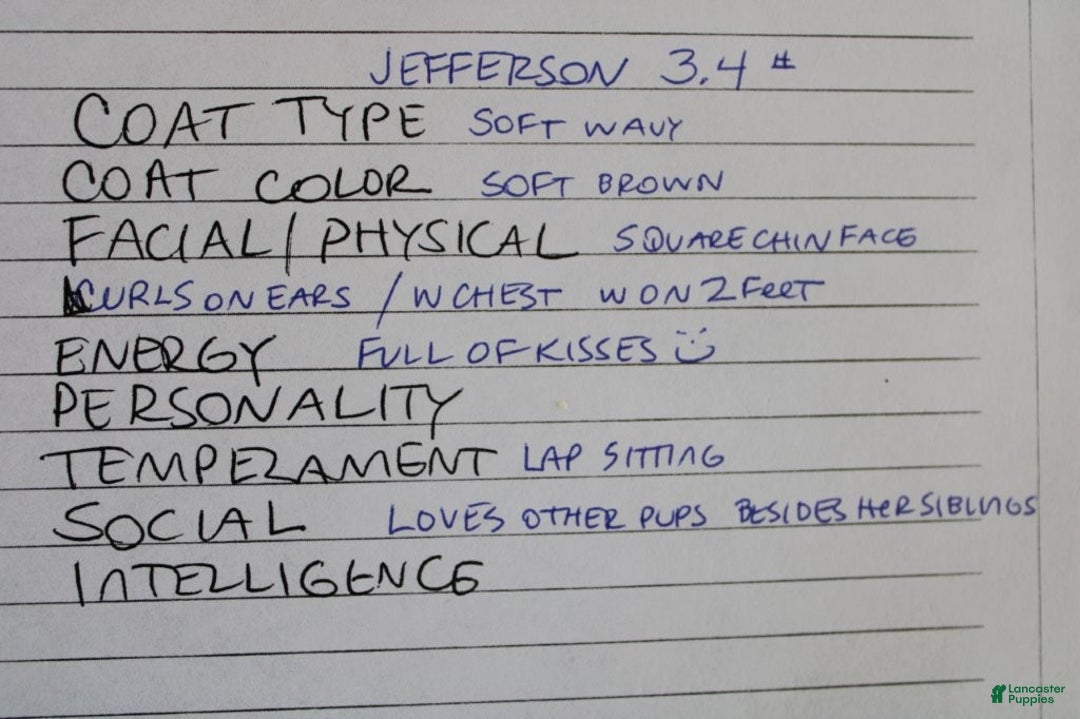 JEFFERSON 3.4 #
COAT TYPE SOFT WAVY
COAT COLOR SOFT BROWN
FACIAL/PHYSICAL SQUARE CHIN FACE
CURLS ON EARS / W CHEST W ON 2 FEET
ENERGY FULL OF KISSES
PERSONALITY
TEMPERAMENT LAP SITTING
SOCIAL LOVES OTHER PUPS BESIDES HER SIBLINGS
INTELLIGENCE
Lancaster
Puppies